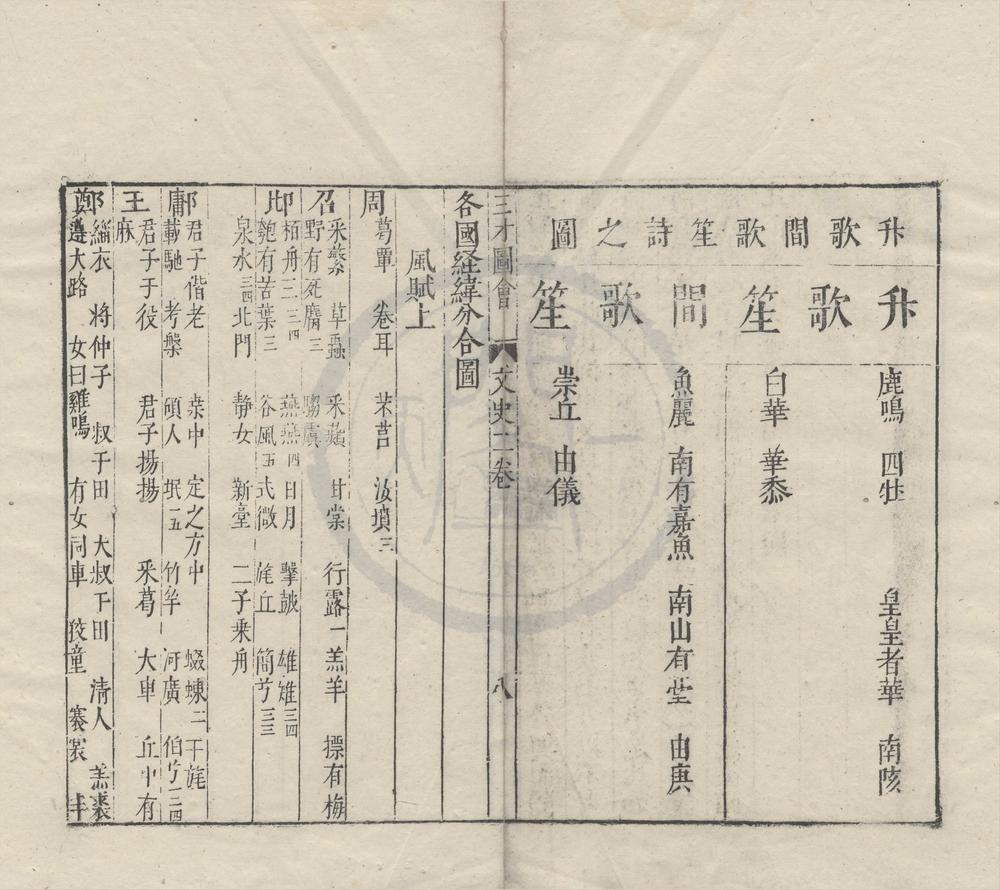 升歌間歌笙詩之圖
升歌
笙
間歌
笙
鹿鳴 四牡 皇皇者華 南陔
白華 華黍
魚麗 南有嘉魚 南山有堂 由庚
崇丘 由儀
三才圖會 文史二卷 八
各國経緯分合圖
風賦上
周 葛覃 卷耳 芣苢 汝墳三
召 采蘩 草蟲 采蘋 甘棠 行露一 羔羊 摽有梅
野有死麕三 騶虞
邶 栢舟三三四 燕燕四 日月 擊鼓 雄雉三四
匏有苦葉三 谷風五 式微 旄丘 簡兮三三
泉水三四 北門 靜女 新臺 二子乗舟
鄘 君子偕老 桑中 定之方中 蝃蝀二 干旄
載馳 考槃 碩人 氓五 竹竿 河廣 伯兮三四
王 君子于役 君子揚揚 采葛 大車 丘中有
麻
鄭 緇衣 將仲子 叔于田 大叔于田 清人 羔裘
遵大路 女曰雞鳴 有女同車 狡童 褰裳 丰